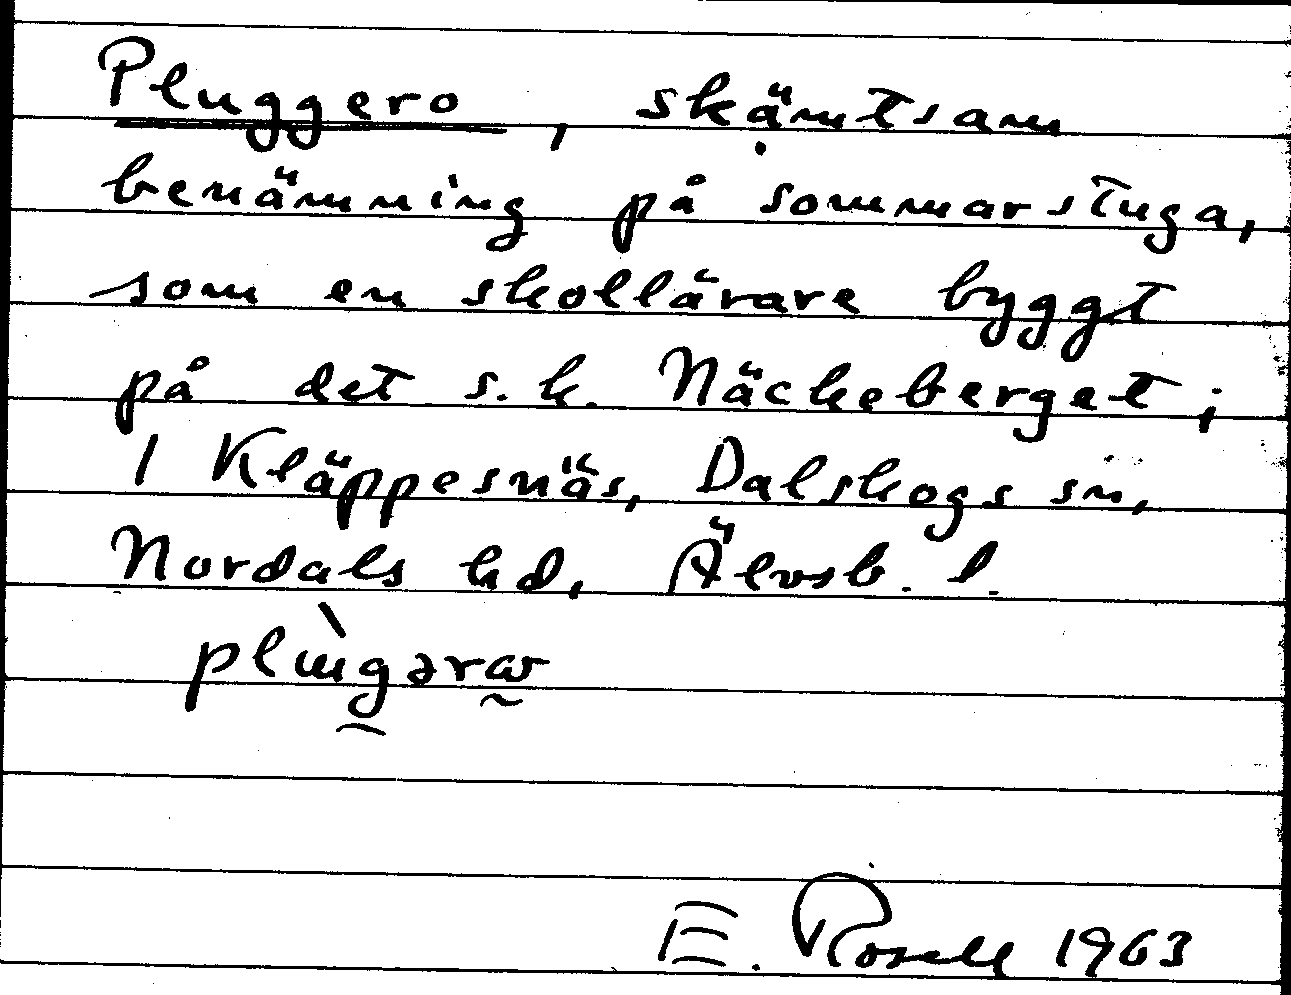 Pluggero, skämtsam
benämning på sommarstuga,
som en skollärare byggt
på det s.k. Näckeberget,
i Kläppesnäs, Dalskogs sn,
Nordals hd, Älvsb. l.
E. Rosell 1963